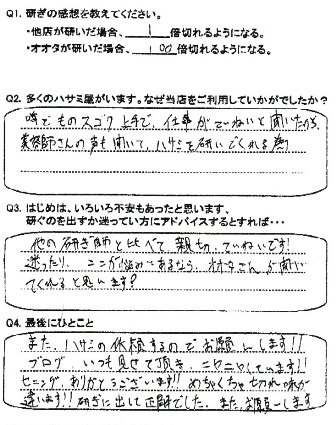 Q1. 研ぎの感想を教えてください。
・他店が研いだ場合、 1 倍切れるようになる。
・オオタが研いだ場合、 100 倍切れるようになる。
Q2. 多くのハサミ屋がいます。なぜ当店をご利用していかがでしたか？
噂でものスゴク上手で、仕事がていねいと聞いたから
美容師さんの声も聞いて、ハサミを研いでくれる為
Q3. はじめは、いろいろ不安もあったと思います、
研ぐのを出すか迷ってい方にアドバイスするとすれば・・・
他の研ぎ師と比べて親切、ていねいです！
迷ったり、ここが悩みにあるなら、オオタさんが聞い
てくれると思います？
Q4. 最後にひとこと
また、ハサミの休憩するのでお願いします！！
ブログ いつも見せて頂き、ニヤニヤしています！！
セニング、ありがとうございます!! めちゃくちゃ切れ味が
違います!! 研ぎに出して正解でした。また、お願いします